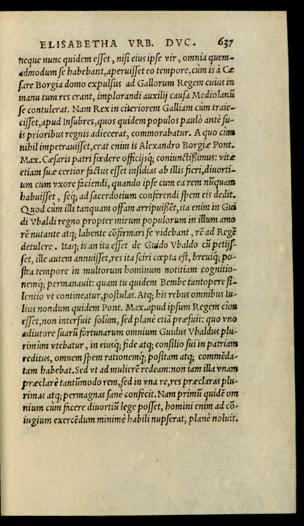 ELISABETHA VRB. DVC. 637
neque nunc quidem esset, nisi eius ipse vir, omnia quem-
admodum se habebant, aperuisset eo tempore, cùm is à Cæ
sare Borgia domo expulsus ad Gallorum Regem cuius in
manu tum res erant, implorandi auxilij causa Mediolanũ
se contulerat. Nam Rex in citeriorem Galliam cùm traie-
cisset, apud Insubres, quos quidem populos paulò antè su-
is prioribus regnis adiecerat, commorabatur. A quo cùm
nihil impetrauisset, erat enim is Alexandro Borgiæ Pont.
Max. Cæsaris patri fœdere officijsq; coniunctissimus: vitæ
etiam suæ certior factus esset insidias ab illis fieri, diuorti-
um cum vxore faciendi, quando ipse cum ea rem nunquam
habuisset, seq; ad sacerdotium conferendi spem eis dedit.
Quod cùm illi tanquam offam arripuissẽt, ita enim in Gui
di Vbaldi regno propter mirum populorum in illum amo
rẽ nutante atq; labente cõfirmari se videbant, rẽ ad Regẽ
detulere. Itaq; is an ita esset de Guido Vbaldo cũ petijs-
set, ille autem annuisset, res ita sciri cœpta est, breuiq; po-
stea tempore in multorum hominum notitiam cognitio-
nemq; permanauit: quam tu quidem Bembe tantopere si-
lentio vt contineatur, postulas. Atq; his rebus omnibus Iu-
lius nondum quidem Pont. Max. apud ipsum Regem cùm
esset, non interfuit solùm, sed planè etiã præfuit: quo vno
adiutore suarũ fortunarum omnium Guidus Vbaldus plu-
rimùm vtebatur, in eiusq; fide atq; consilio sui in patriam
reditus, omnem spem rationemq; positam atq; commẽda-
tam habebat. Sed vt ad mulierẽ redeam: non iam illa vnam
præclarè tantùmodo rem, sed in vna re, res præclaras plu-
rimas atq; permagnas sanè confecit. Nam primũ quidẽ om
nium cùm facere diuortiũ lege posset, homini enim ad cõ-
iugium exercẽdum minimè habili nupserat, planè noluit.